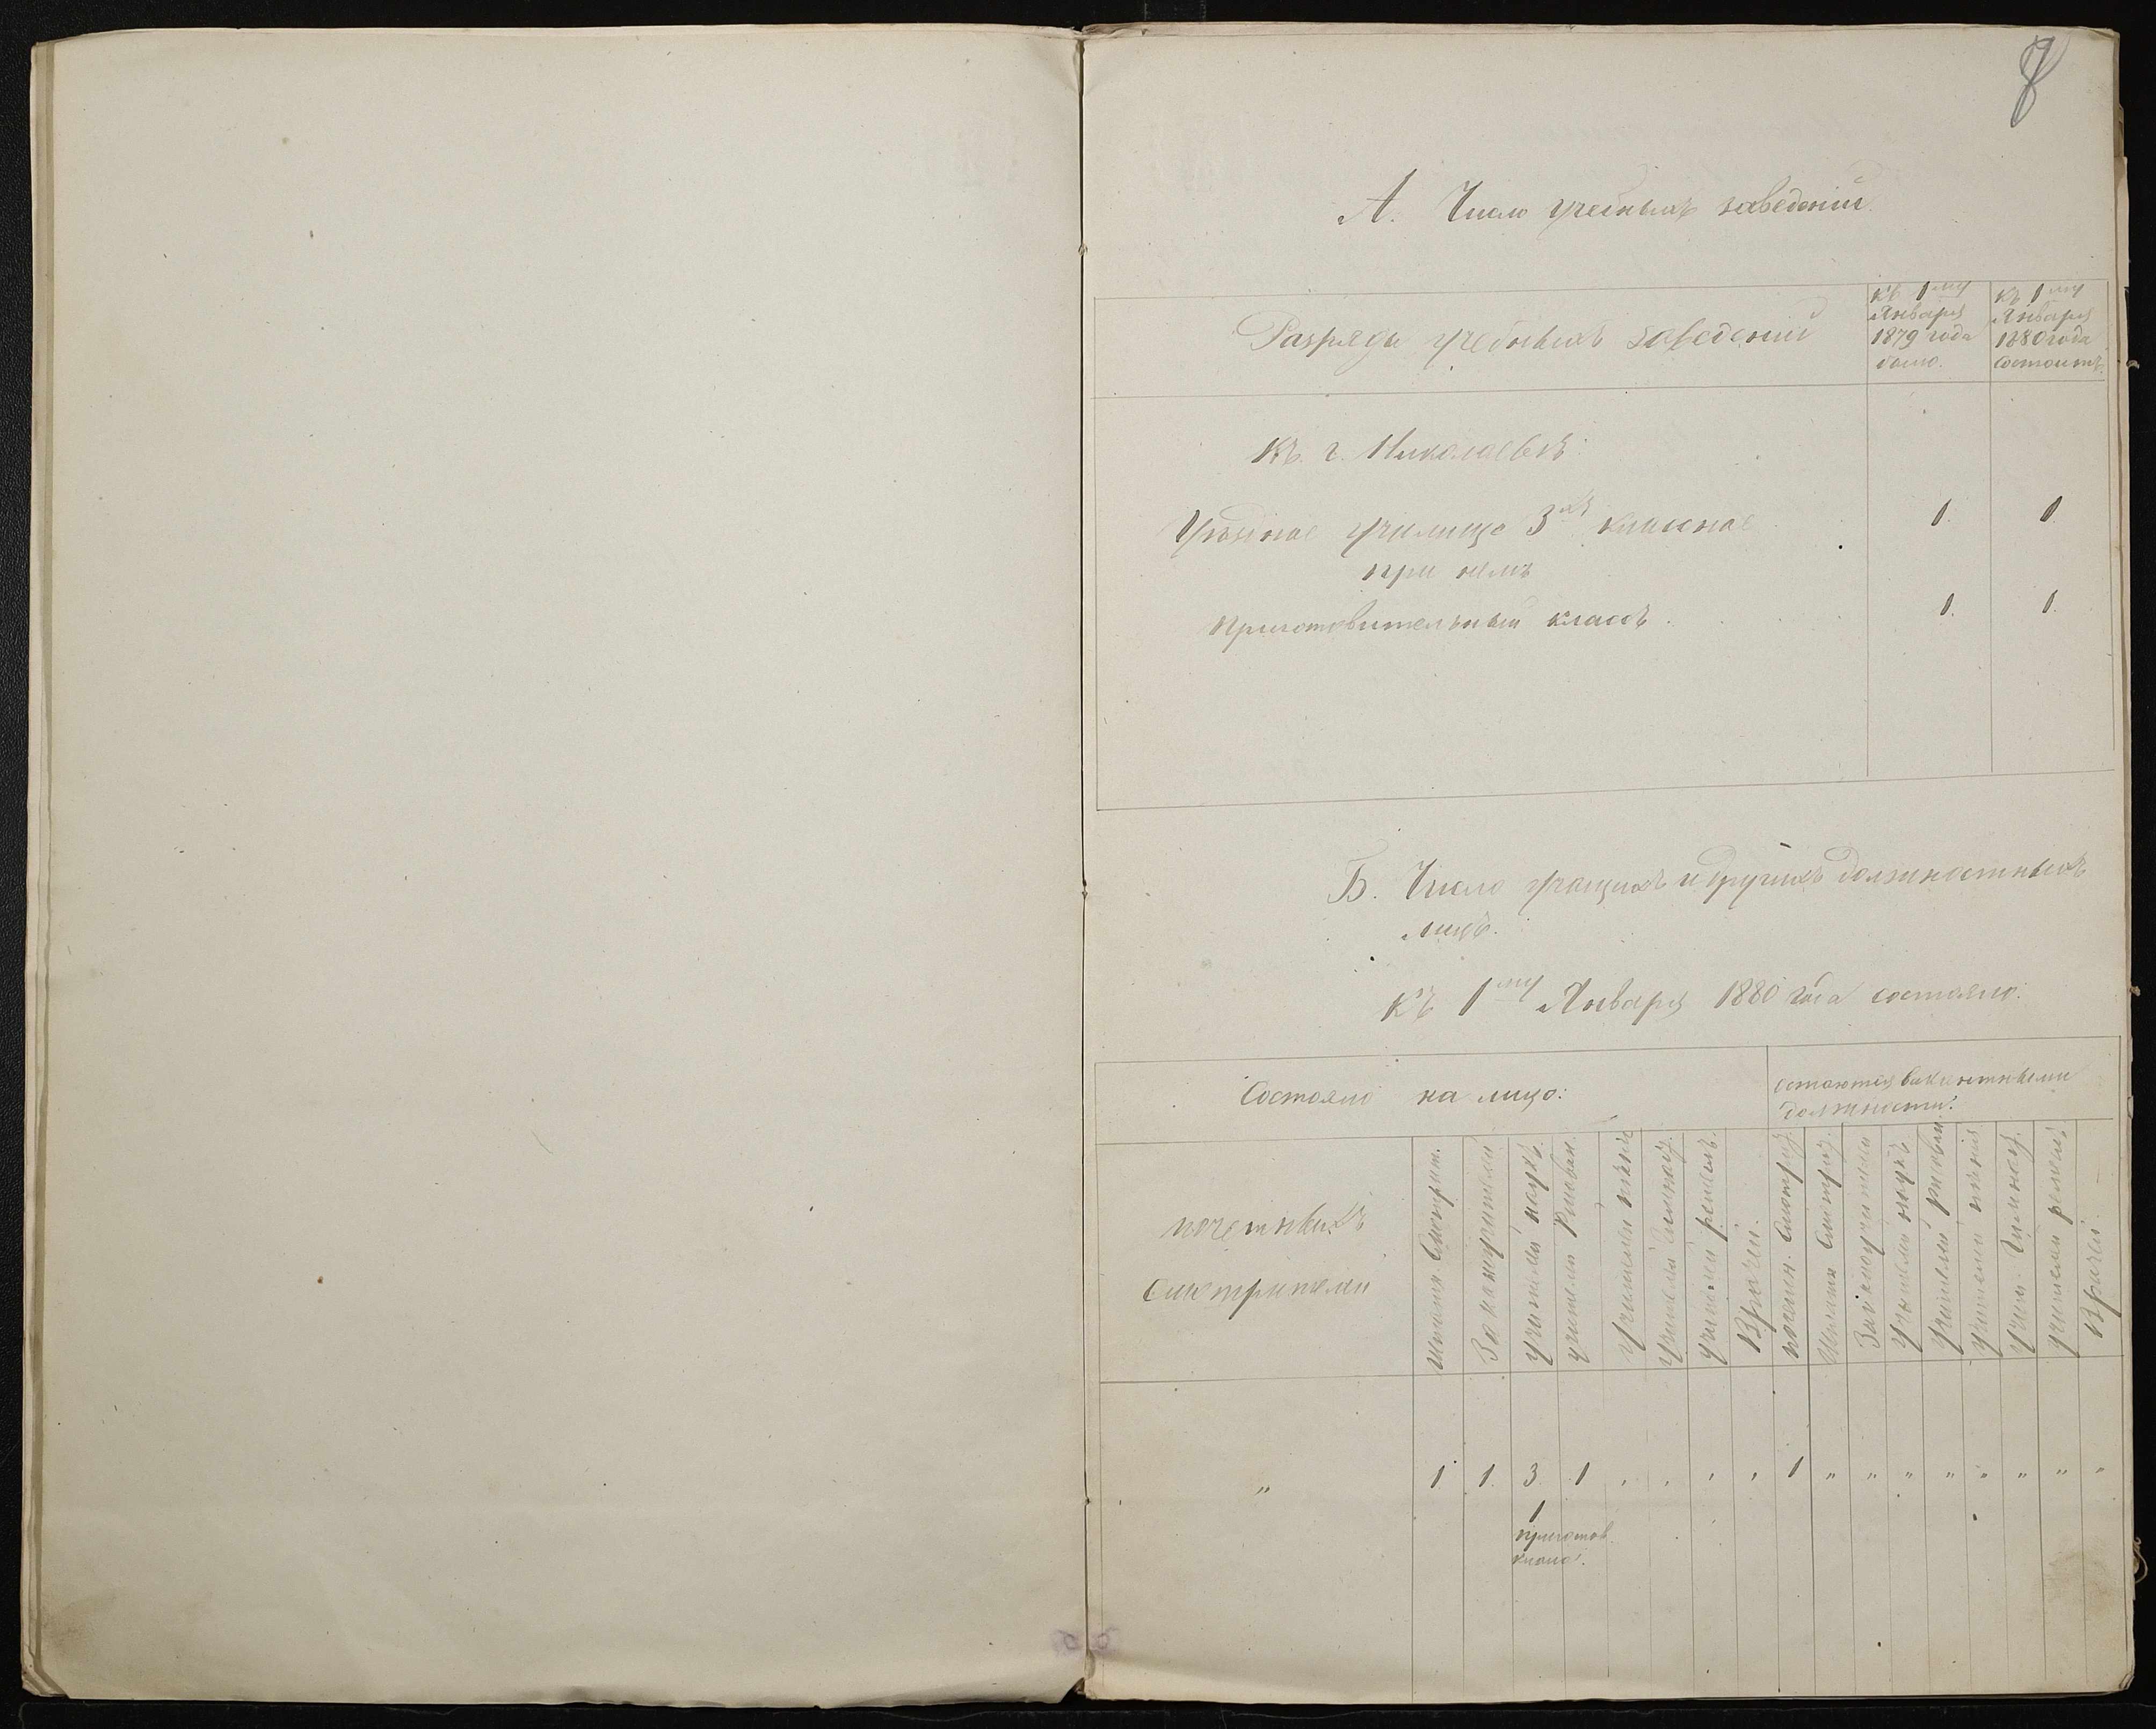 8
А. Число учебныхъ заведеній.
Разряды учебныхъ заведеній
къ 1му
Января
1879 года
было.
къ 1му
Января
1880 года
состоитъ.
Въ г. Николаевскѣ:
Уѣздное училище 3хъ классное 1. 1.
при немъ
приготовительный классъ. 1. 1.
Б. Число учащихъ и другихъ должностныхъ
лицъ.
Къ 1му Января 1880 года состояло:
Состояло на лицо:
остаются вакантными
должности:
почетныхъ
Смотрители
Штатн. Смотрит.
Законоучители
Учители наукъ.
учители Рисован.
Учители пѣнія
Учители Гимнаст.
Учители ремеслъ.
Врачей.
почетн. Смотрит.
Штатн. Смотрит.
Законоучители
Учители наукъ
Учители рисован.
учители пѣнія
учит. Гимнаст.
учители ремеслъ
Врачей.
„ 1. 1. 3. 1 „ „ „ „ 1 „ „ „ „ „ „ „ „
1
приготов.
класс.